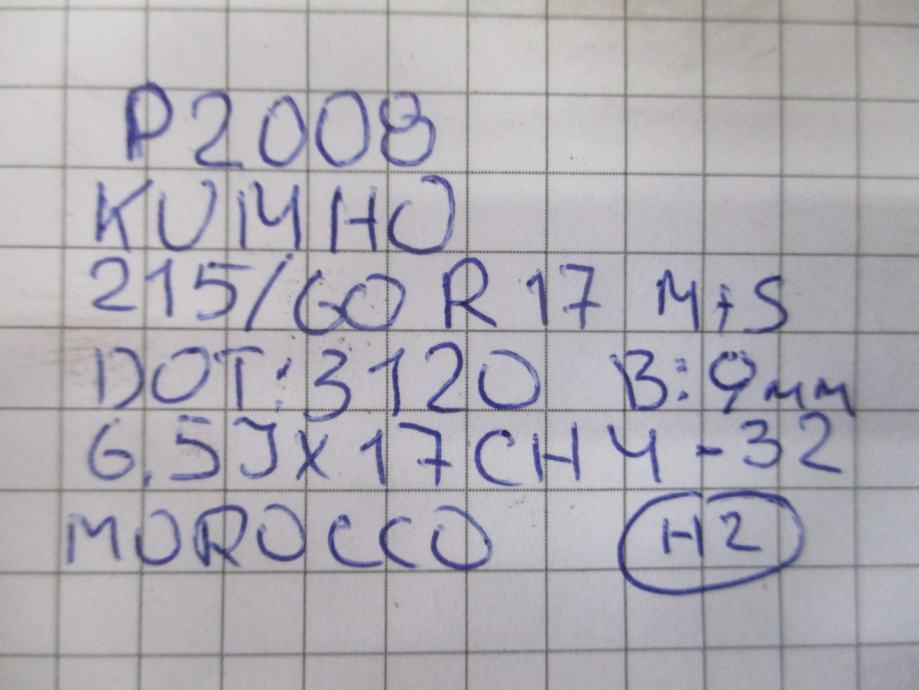 P2008
KUMHO
215/60 R 17 M+S
DOT: 3120 B: 9mm
6.5Jx17CH4-32
MOROCCO H2